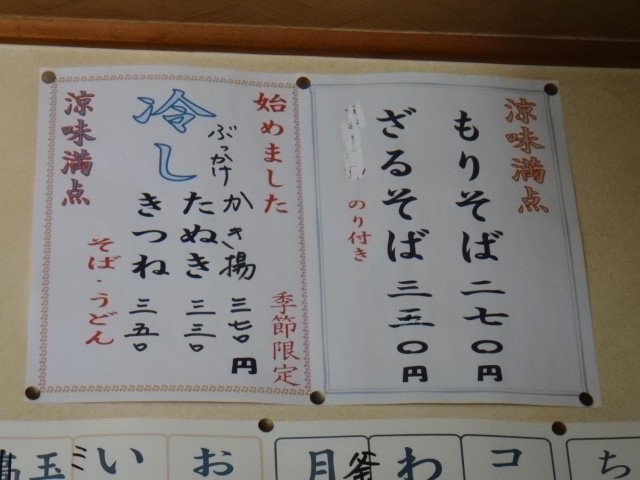 涼味満点
もりそば 二七〇円
ざるそば 三三〇円
のり付き
始めました
季節限定
冷し
ぶっかけ
かき揚 三七〇円
たぬき 三三〇
きつね 三五〇
そば・うどん
涼味満点
ち
コ
わ
釜
月
お
い
玉